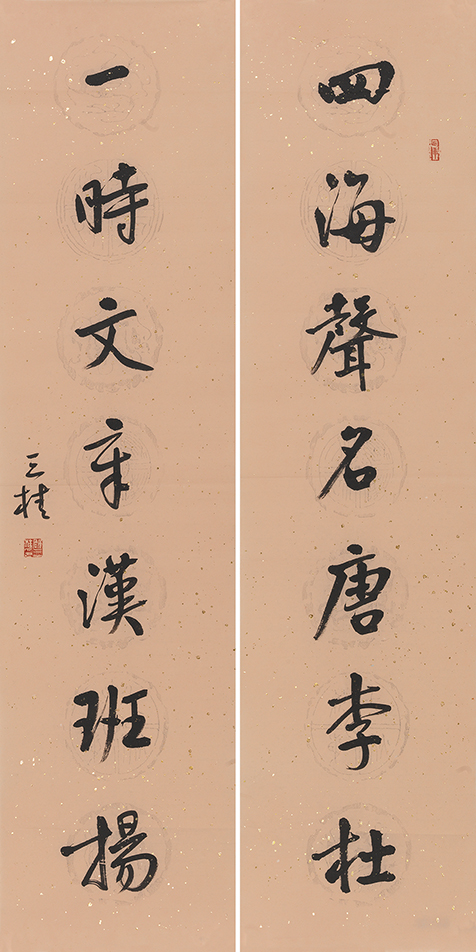 四海聲名唐李杜
一時文章漢班揚
三桂